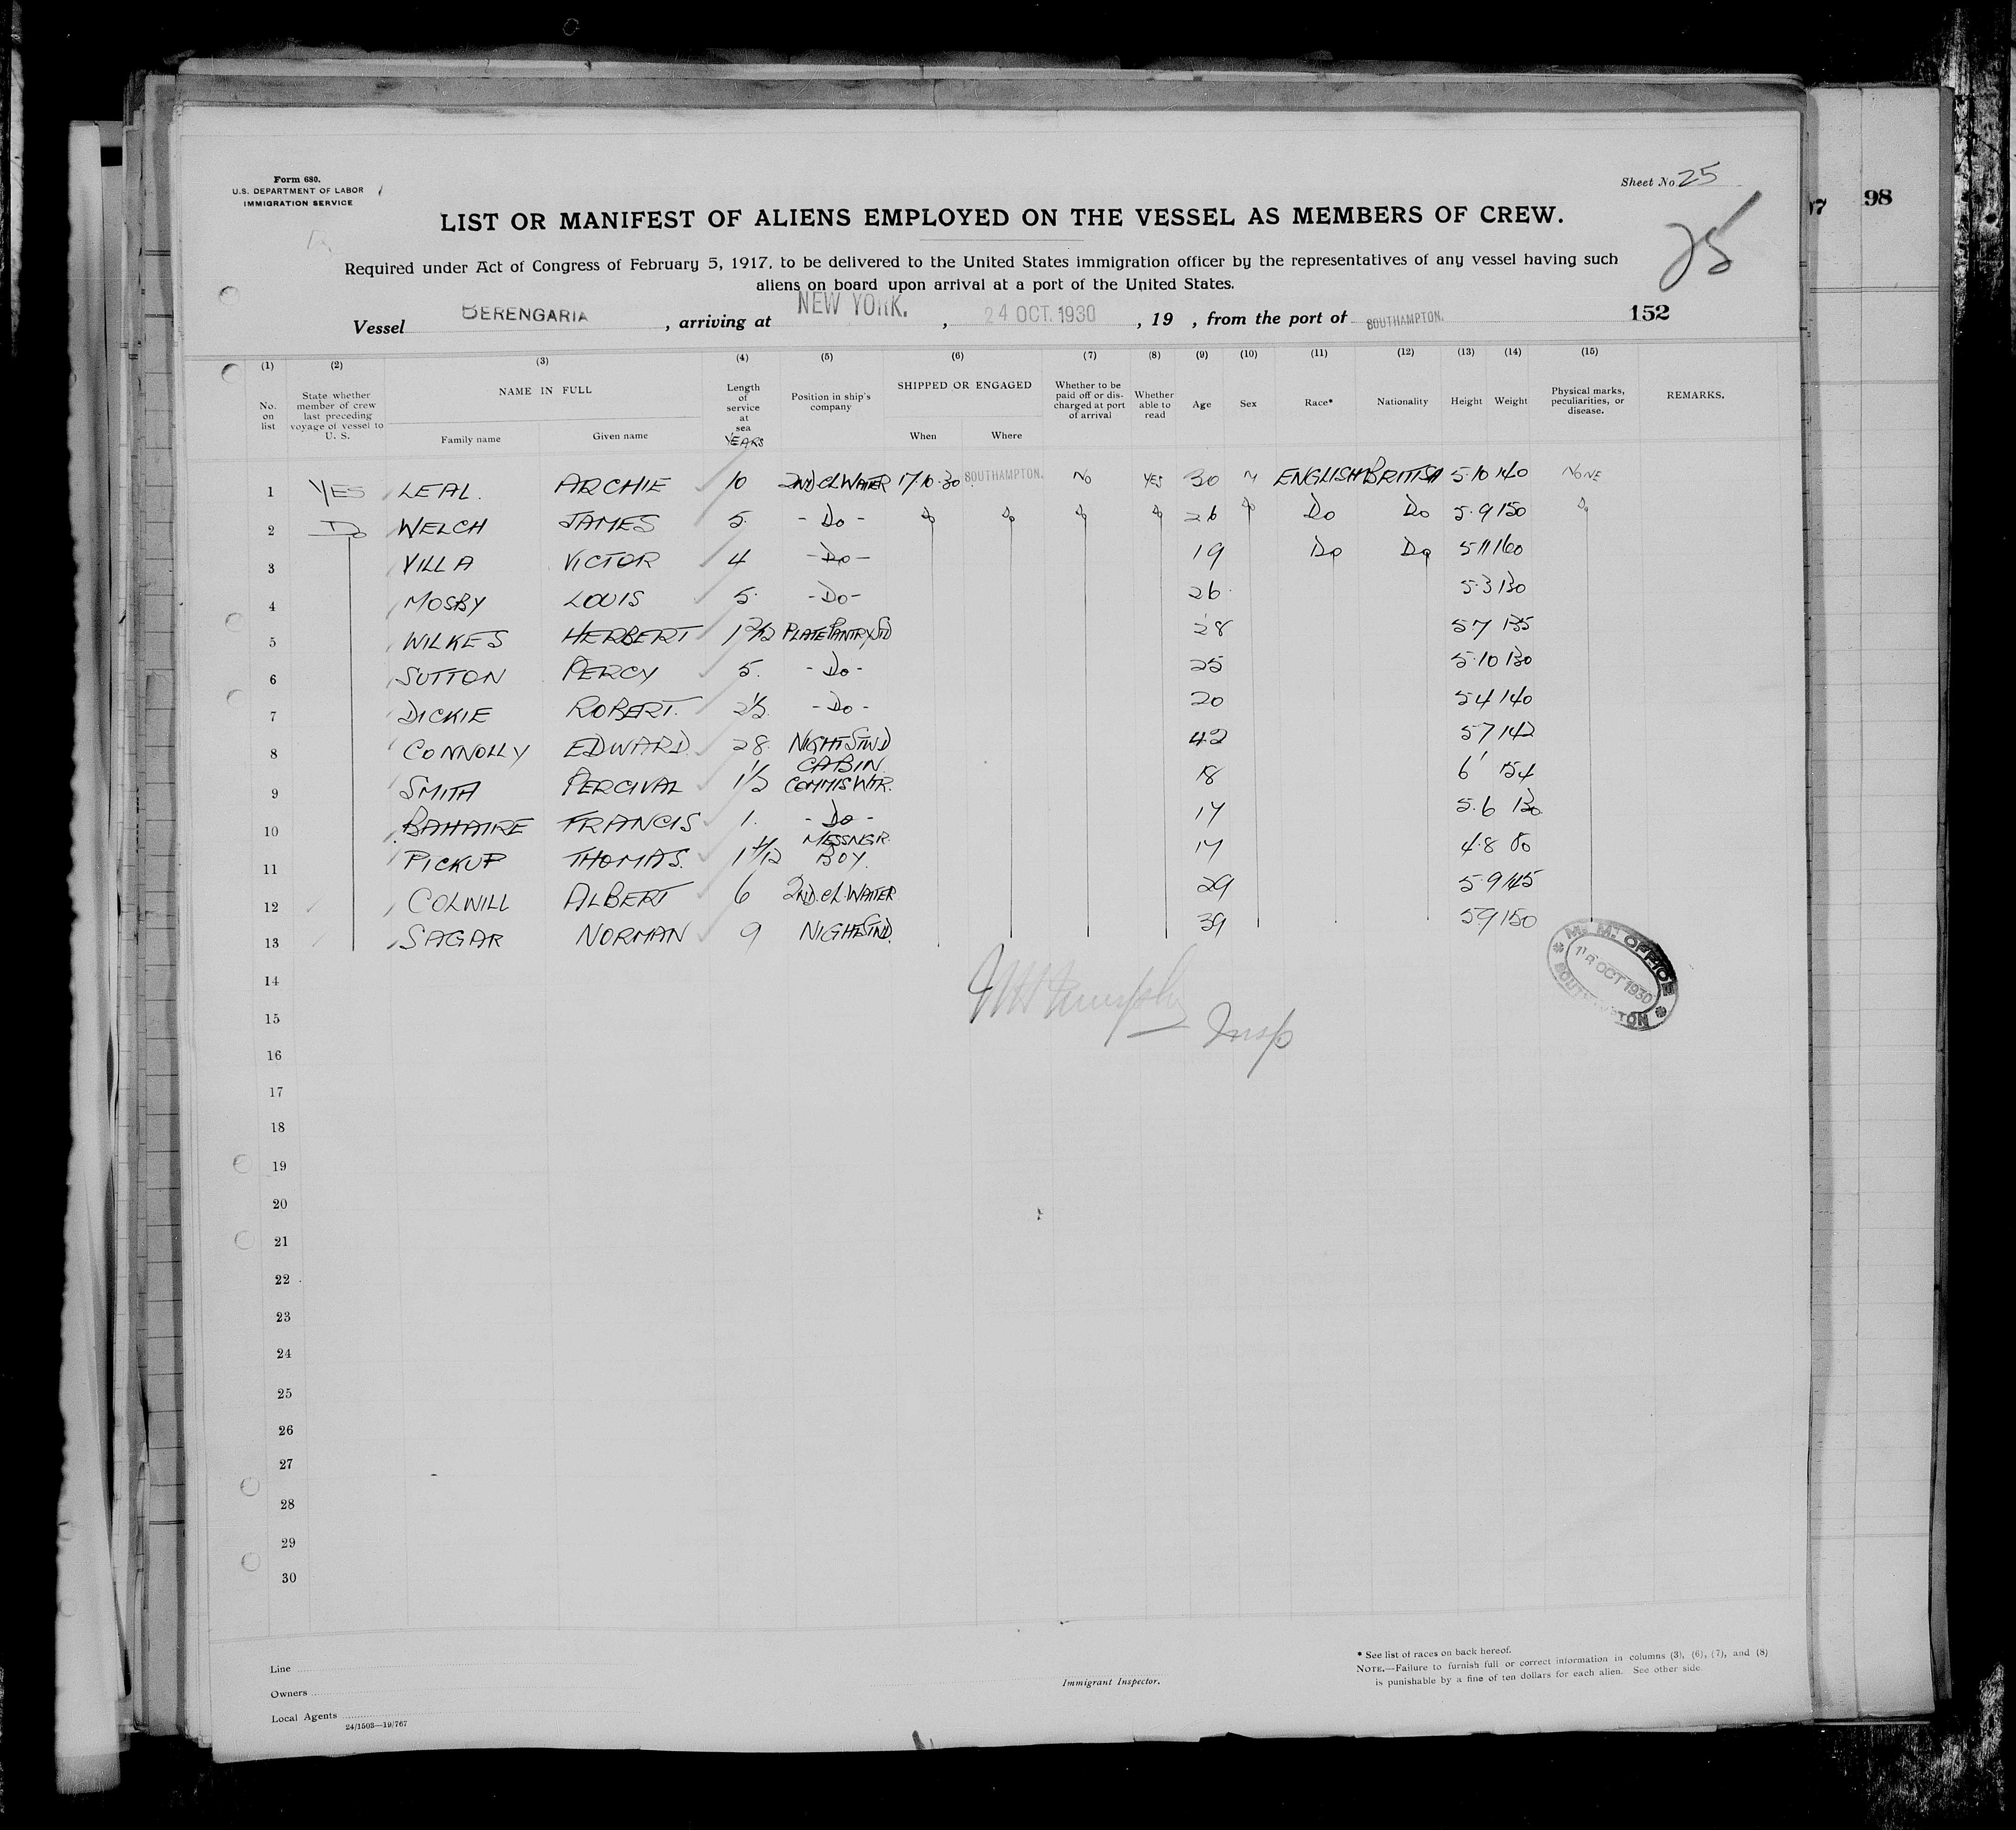 Form 680.
U.S. DEPARTMENT OF LABOR
IMMIGRATION SERVICE
Sheet No. 25
98
LIST OR MANIFEST OF ALIENS EMPLOYED ON THE VESSEL AS MEMBERS OF CREW.
25
Required under Act of Congress of February 5, 1917, to be delivered to the United States immigration officer by the representatives of any vessel having such
aliens on board upon arrival at a port of the United States.
Vessel BERENGARIA, arriving at NEW YORK., 24 OCT. 1930, 19 , from the port of SOUTHAMPTON. 152
(1) (2) (3) (4) (5) (6) (7) (8) (9) (10) (11) (12) (13) (14) (15)
No. on list State whether member of crew last preceding voyage of vessel to U. S. NAME IN FULL Length of service at sea YEARS Position in ship's company SHIPPED OR ENGAGED Whether to be paid off or discharged at port of arrival Whether able to read Age Sex Race* Nationality Height Weight Physical marks, peculiarities, or disease. REMARKS.
Family name Given name When Where
1 YES LEAL. ARCHIE 10 2ND CL WAITER 17.10.30 SOUTHAMPTON. NO YES 30 M ENGLISH BRITISH 5.10 140 NONE
2 Do WELCH JAMES 5. - Do - Do Do Do Do 26 Do Do Do 5.9 150 Do
3 VILLA VICTOR 4 - Do - 19 Do Do 5 11 160
4 MOSBY LOUIS 5. - Do - 26. 5.3 130
5 WILKES HERBERT 1 2/12 PLATE PANTRY STD 28 5.7 135
6 SUTTON PERCY 5. - Do - 25 5.10 130
7 DICKIE ROBERT. 2½ - Do - 20 5 4 140
8 CONNOLLY EDWARD. 28. NIGHT STWD 42 5 7 142
9 SMITH PERCIVAL 1½ CABIN COMMIS WTR. 18 6' 154
10 BAHAIRE FRANCIS 1. - Do - 17 5.6 130
11 PICKUP THOMAS. 1 4/12 MESSNGR. BOY. 17 4.8 80
12 COLWILL ALBERT 6 2ND. CL. WAITER 29 5 9 145
13 SAGAR NORMAN 9 NIGHT STWD. 39 5 9 150
M. M. OFFICE
OCT 1930
SOUTHAMPTON
14
Murphy
15
Insp
16
17
18
19
20
21
22
23
24
25
26
27
28
29
30
Line
Owners
Local Agents
24/1503—19/767
Immigrant Inspector.
* See list of races on back hereof.
NOTE.—Failure to furnish full or correct information in columns (3), (6), (7), and (8)
is punishable by a fine of ten dollars for each alien. See other side